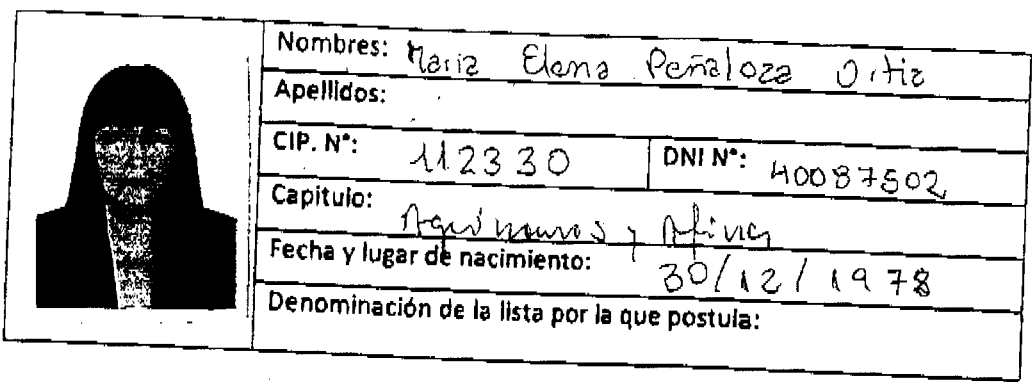 Nombres: Maria Elena Peñaloza Ortiz
Apellidos:
CIP. N°: 112330 DNI N°: 40087502
Capitulo: Agrónomos y Afines
Fecha y lugar de nacimiento: 30/12/1978
Denominación de la lista por la que postula: